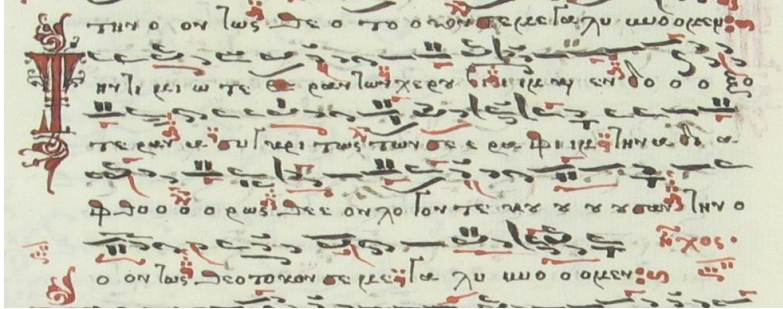 την ο ον τως θε ο το ο κον σε με γα λυ νο ο μεν
Την τι μι ω τε ε ραν των χε ρου βι ιμ και εν δο ο ο ξο
τε ραν α συ γκρι τως των σε ε ρα φι ιμ την α δι α
φθο ο ο ο ρως θε ε ον λο γον τε κου ου ου ου σαν την ο
ηχος
ο ον τως θε ο το κον σε με γα λυ νο ο μεν